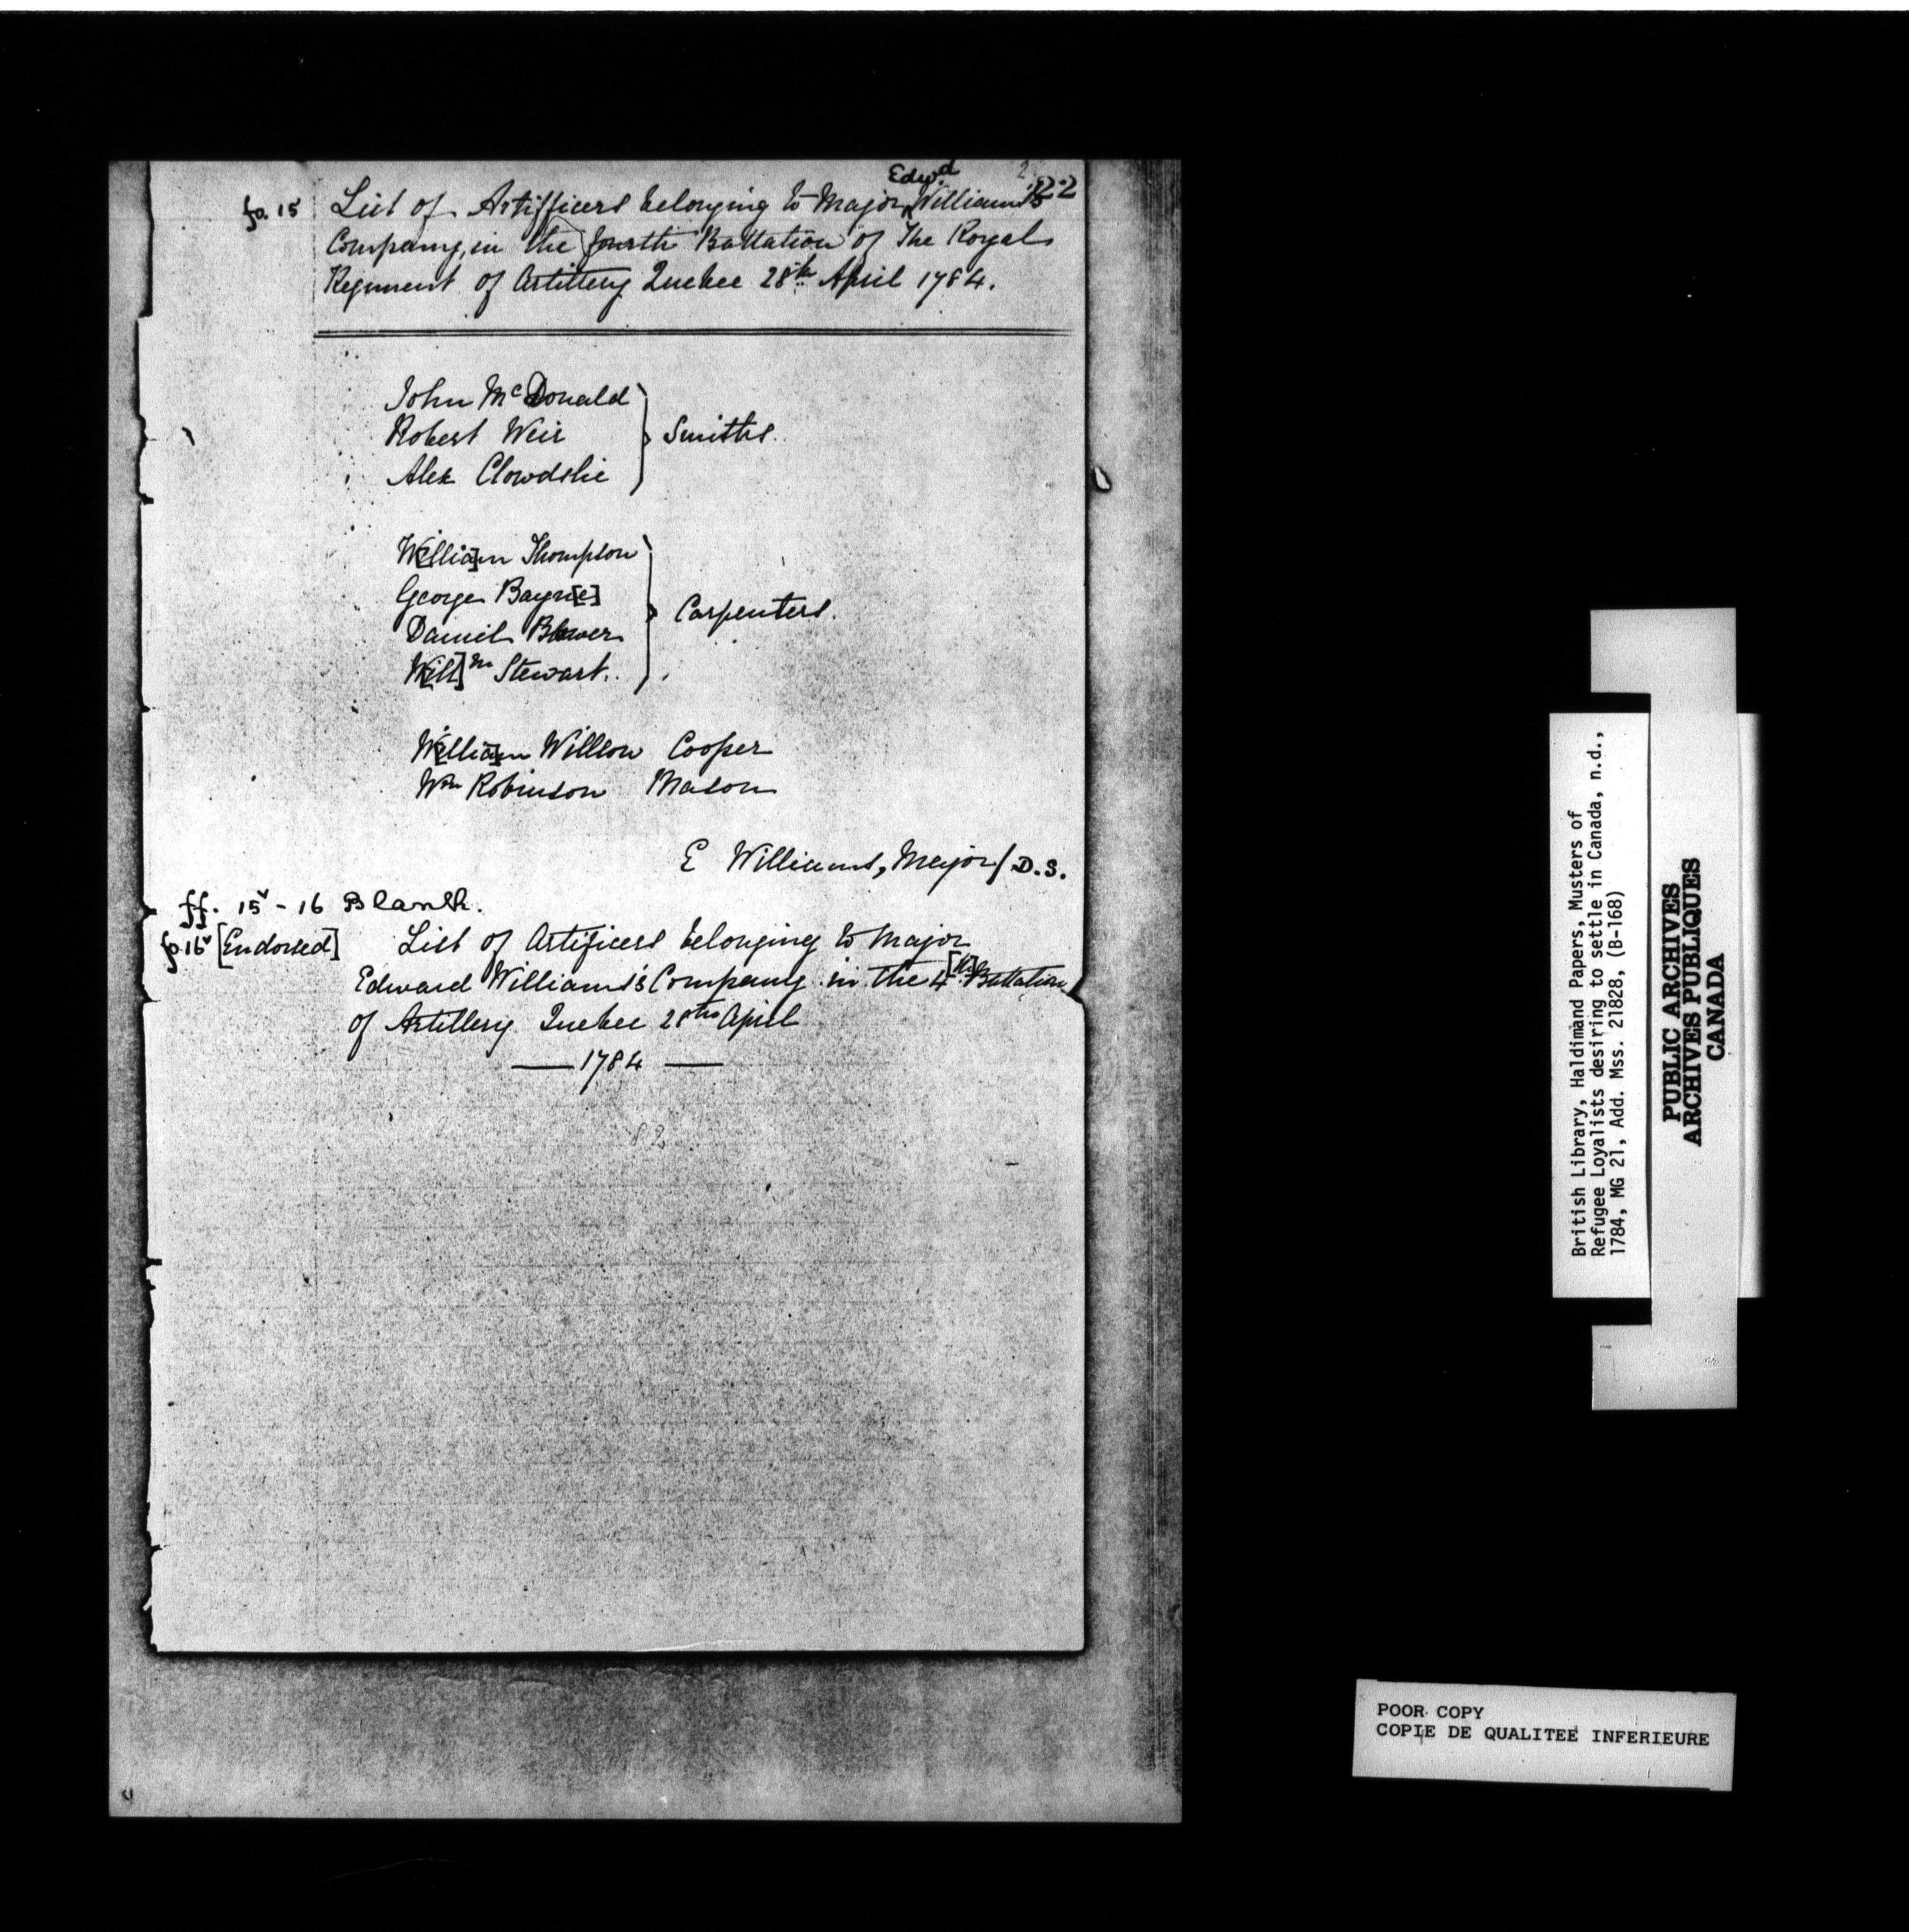 22
Edwd
fo. 15 List of Artifficers belonging to Major Williams's
Company, in the fourth Battalion of The Royal
Regiment of Artillery Quebec 28th April 1784.
John McDonald
Robert Weir Smiths.
Alex Clowdslie
W[illia]m Thompson
George Bayn[e]
Carpenters.
Daniel Blower
W[ill]m Stewart.
W[illia]m Willson Cooper
Wm Robinson Mason
E Williams, Major / D.S.
ff. 15v - 16 Blank.
fo. 16v [Endorsed] List of Artificers belonging to Major
Edward Williams's Company in the 4[th] Battalion
of Artillery Quebec 28th April
— 1784 —
British Library, Haldimand Papers, Musters of
Refugee Loyalists desiring to settle in Canada, n.d.,
1784, MG 21, Add. Mss. 21828, (B-168)
PUBLIC ARCHIVES
ARCHIVES PUBLIQUES
CANADA
POOR COPY
COPIE DE QUALITEE INFERIEURE